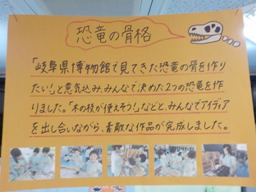 恐竜の骨格
「岐阜県博物館で見てきた恐竜の骨を作り
たい！」と意気込み、みんなで決めた2つの恐竜を作
りました。「木の枝が使えそう！」などと、みんなでアイディア
を出し合いながら、素敵な作品が完成しました。